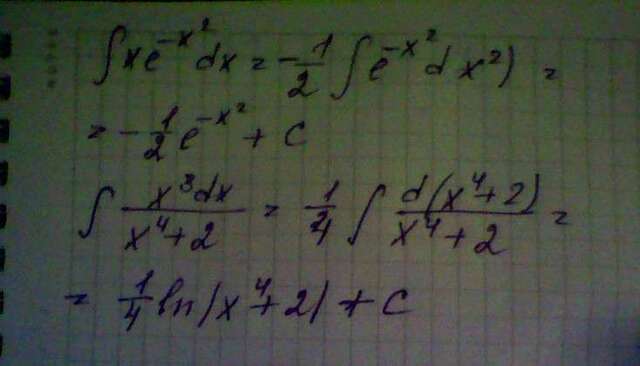 ∫xe^{-x^2}dx = -1/2 ∫e^{-x^2}dx^2) =
= -1/2 e^{-x^2} + C
∫ x^3dx/(x^4+2) = 1/4 ∫ d(x^4+2)/(x^4+2) =
= 1/4 ln|x^4+2| + C